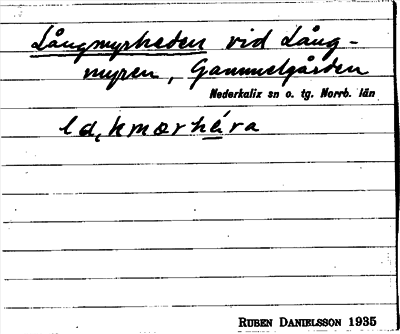 Långmyrheden vid Lång-
myren, Gammelgården
Nederkalix sn o. tg. Norrb. län
RUBEN DANIELSSON 1935